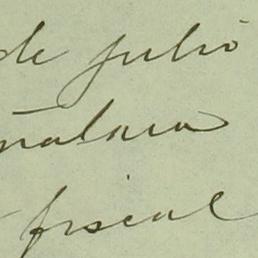 de julio
ñalara
fiscal